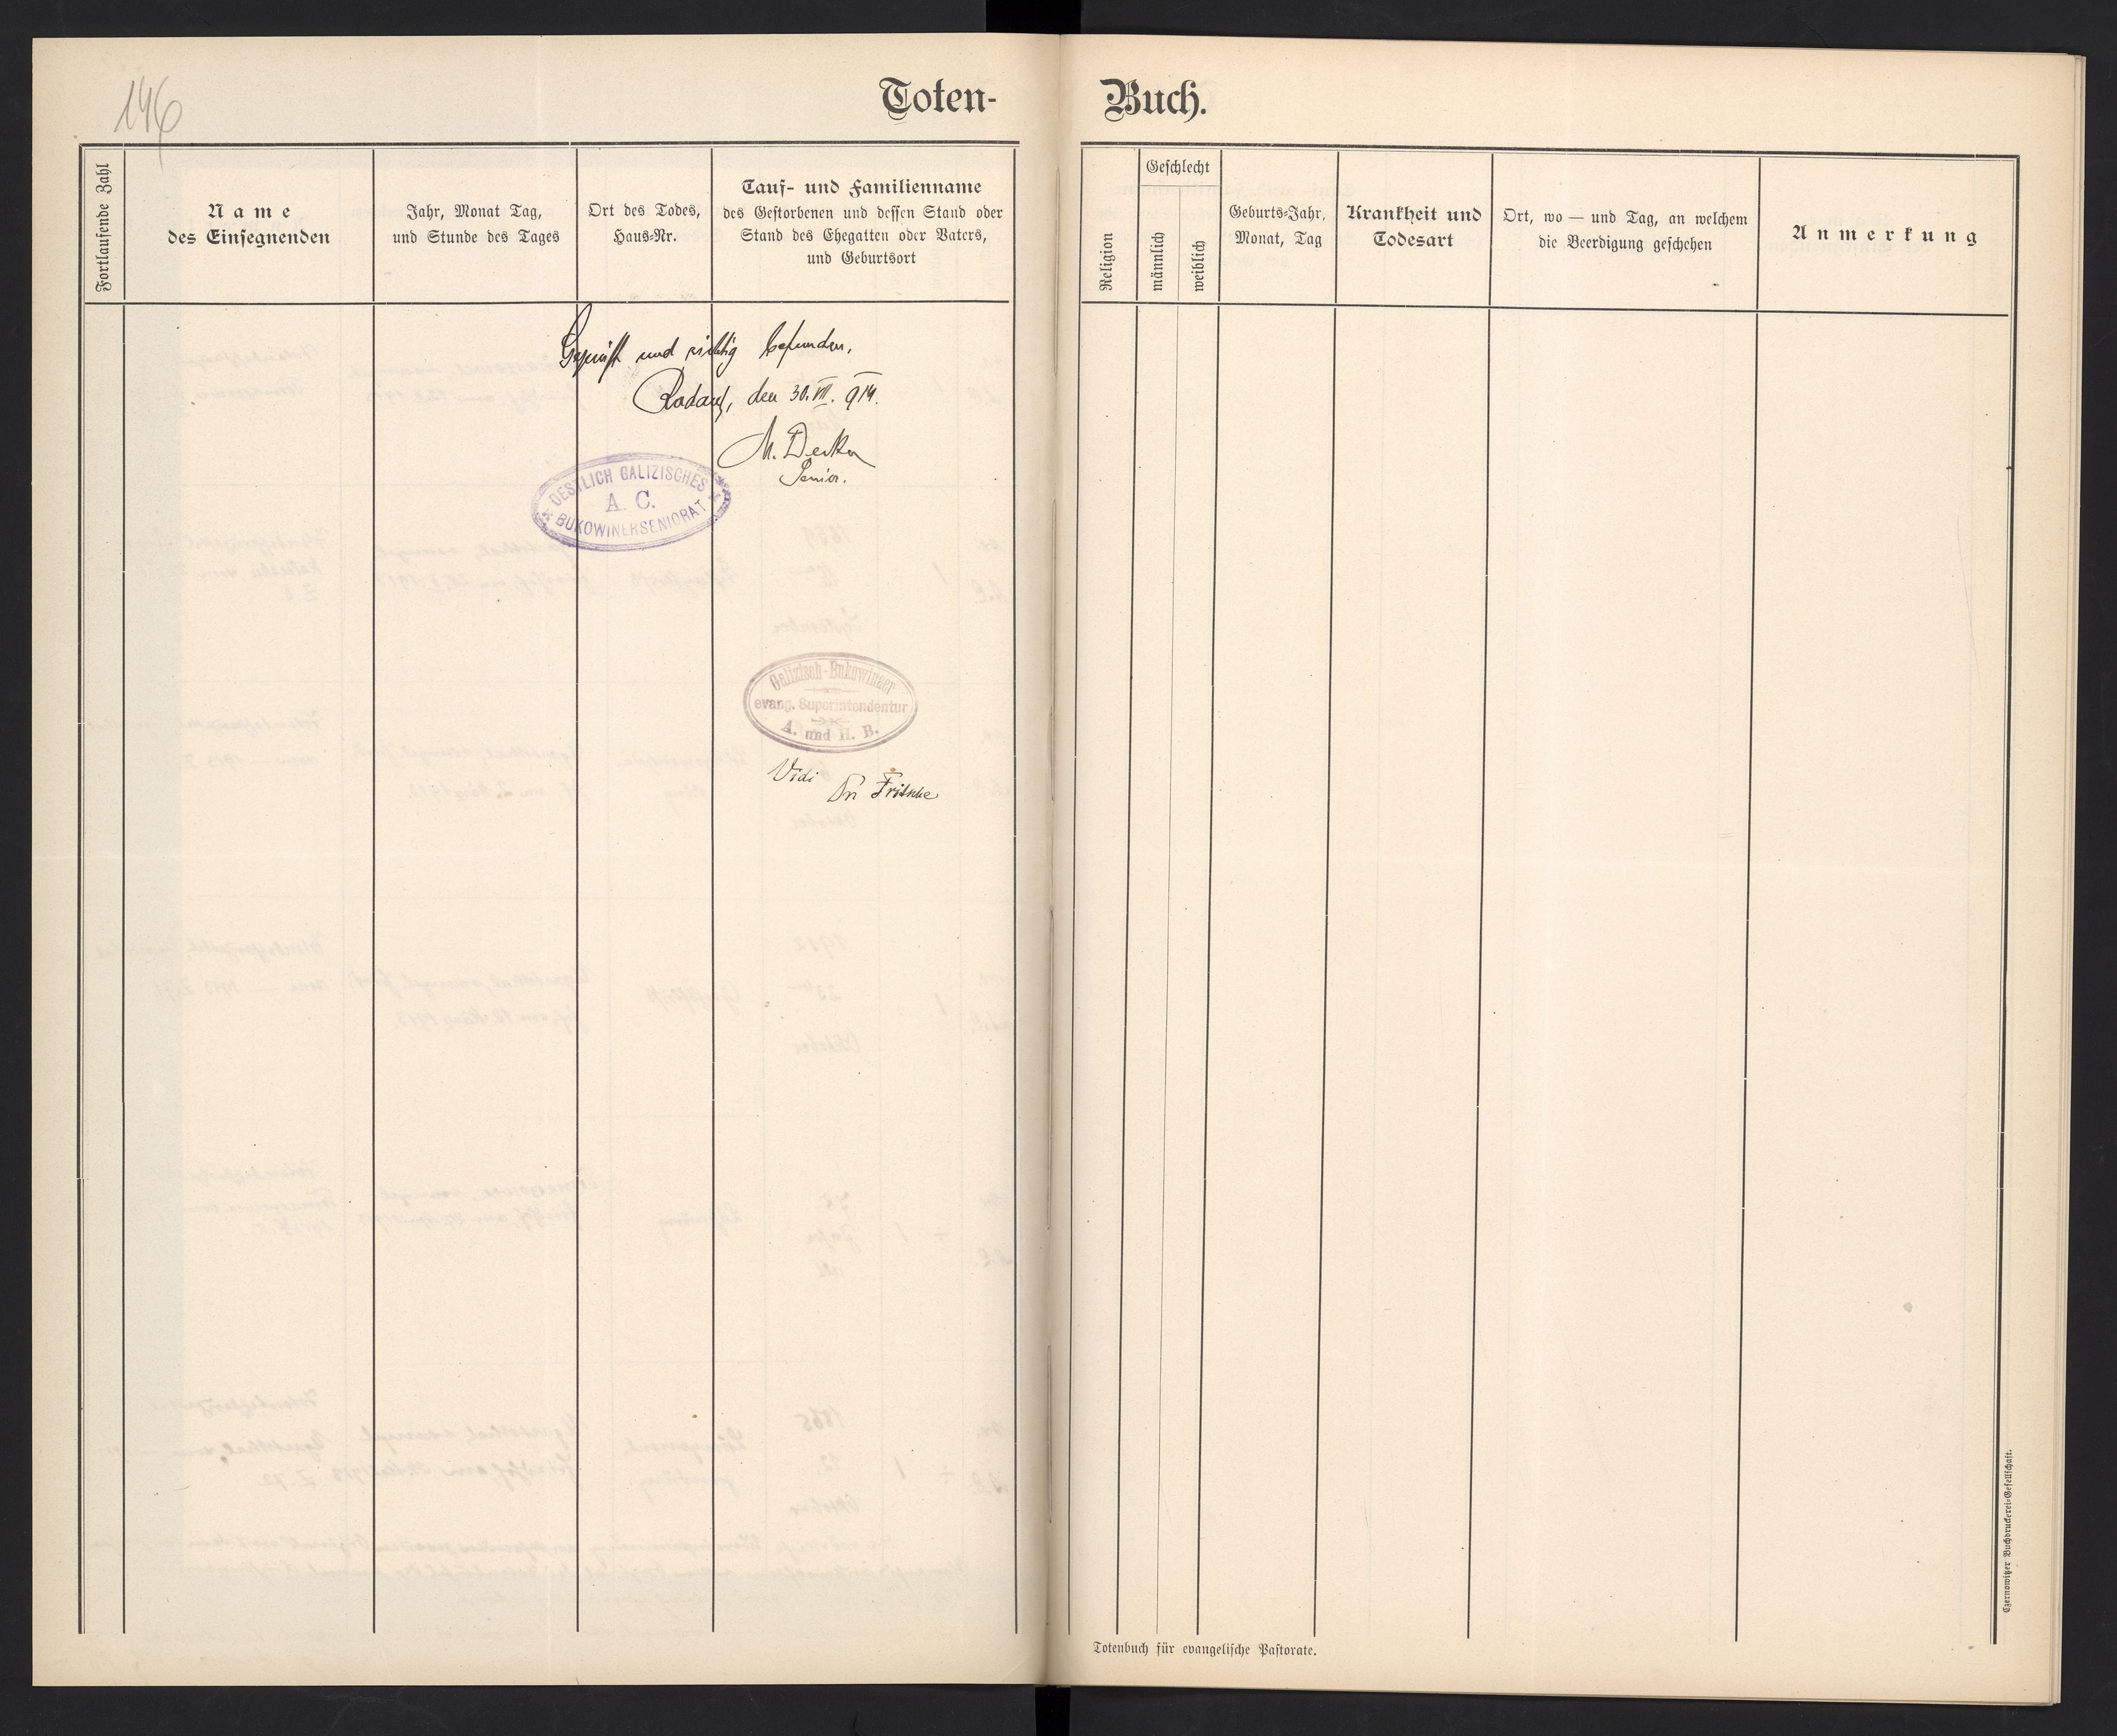 146
Toten-
Buch.
Fortlaufende Zahl
Name
des Einsegnenden
Jahr, Monat Tag,
und Stunde des Tages
Ort des Todes,
Haus-Nr.
Tauf- und Familienname
des Gestorbenen und dessen Stand oder
Stand des Ehegatten oder Vaters,
und Geburtsort
Religion
Geschlecht
männlich
weiblich
Geburts-Jahr,
Monat, Tag
Krankheit und
Todesart
Ort, wo — und Tag, an welchem
die Beerdigung geschehen
Anmerkung
Geprüft und richtig befunden,
Radautz, den 30. VII. 914.
M. Decker
Senior.
OESTLICH GALIZISCHES
A. C.
BUKOWINERSENIORAT
Galizisch-Bukowinaer
evang. Superintendentur
A. und H. B.
Vidi
Dr Fritsche
Totenbuch für evangelische Pastorate.
Czernowitzer Buchdruckerei-Gesellschaft.